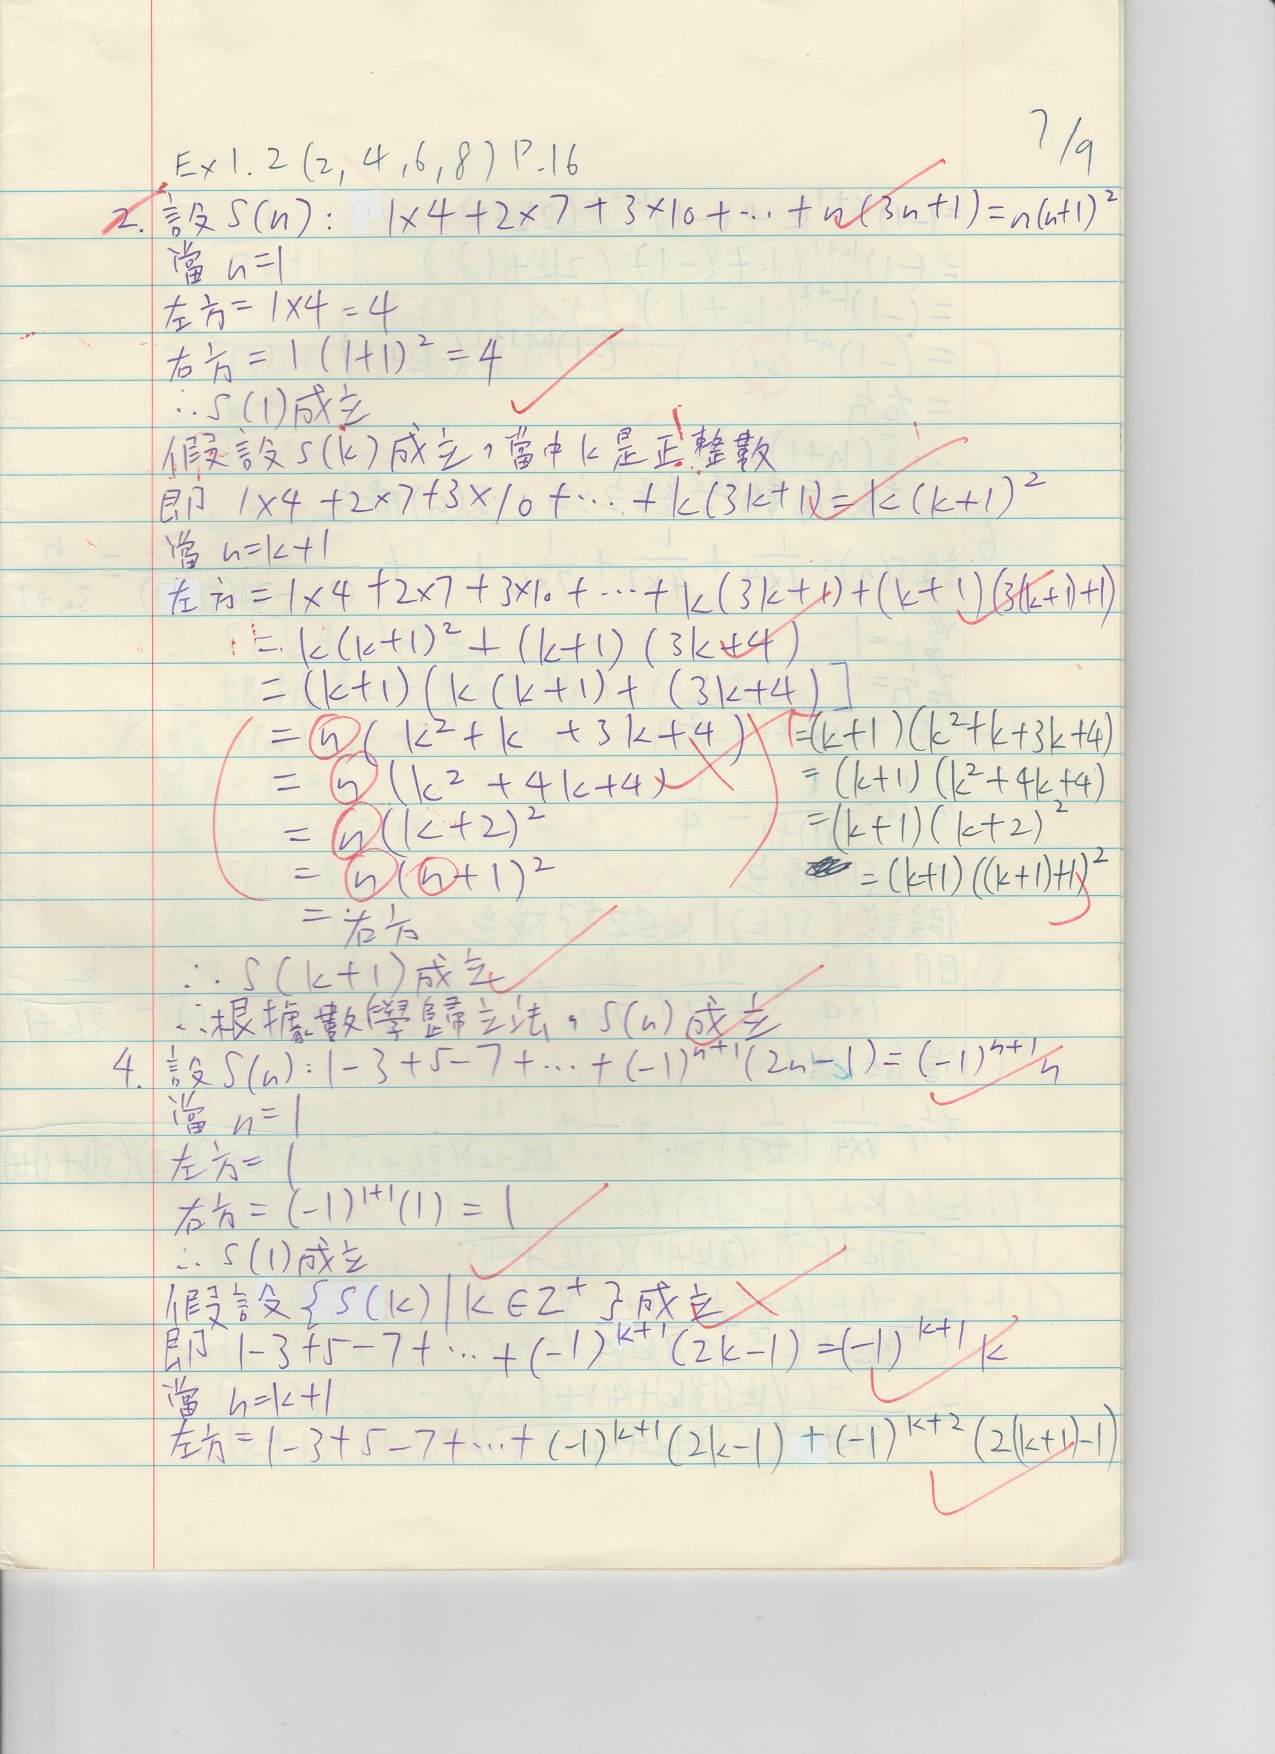 7/9
Ex 1.2 (2, 4, 6, 8) P.16
2. 設 S(n): 1×4+2×7+3×10+…+n(3n+1)=n(n+1)²
當 n=1
左方=1×4=4
右方=1(1+1)²=4
∴S(1)成立
假設 S(k)成立，當中k是正整數
即 1×4+2×7+3×10+…+k(3k+1)=k(k+1)²
當 n=k+1
左方=1×4+2×7+3×10+…+k(3k+1)+(k+1)(3(k+1)+1)
=k(k+1)²+(k+1)(3k+4)
=(k+1)(k(k+1)+(3k+4)]
=n(k²+k+3k+4)
=n(k²+4k+4)
=n(k+2)²
=n(n+1)²
=(k+1)(k²+k+3k+4)
=(k+1)(k²+4k+4)
=(k+1)(k+2)²
=(k+1)((k+1)+1)²
=右方
∴S(k+1)成立
∴根據數學歸立法，S(n)成立
4. 設 S(n):1-3+5-7+…+(-1)ⁿ⁺¹(2n-1)=(-1)ⁿ⁺¹n
當 n=1
左方=1
右方=(-1)¹⁺¹(1)=1
∴S(1)成立
假設{S(k)|k∈Z⁺}成立
即 1-3+5-7+…+(-1)ᵏ⁺¹(2k-1)=(-1)ᵏ⁺¹k
當 n=k+1
左方=1-3+5-7+…+(-1)ᵏ⁺¹(2k-1)+(-1)ᵏ⁺²(2(k+1)-1)